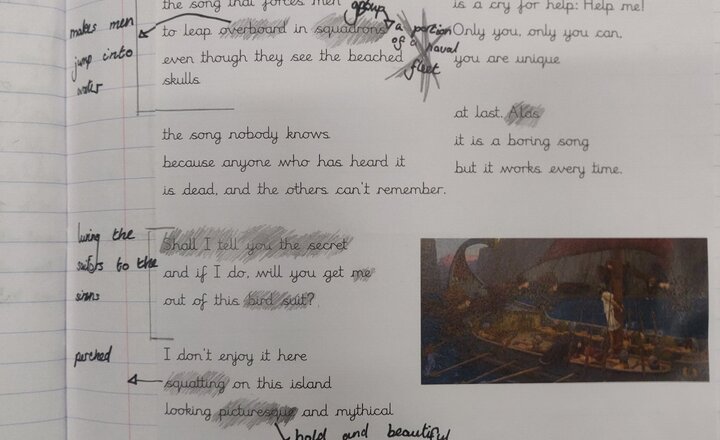 the song that forces men
to leap overboard in squadrons
even though they see the beached
skulls
the song nobody knows
because anyone who has heard it
is dead, and the others can't remember.
Shall I tell you the secret
and if I do, will you get me
out of this bird suit?
I don't enjoy it here
squatting on this island
looking picturesque and mythical
is a cry for help: Help me!
Only you, only you can,
you are unique
at last. Alas
it is a boring song
but it works every time.
makes men
jump into
water
group
a portion
of a naval
fleet
luring the
to the
perched
bold and beautiful